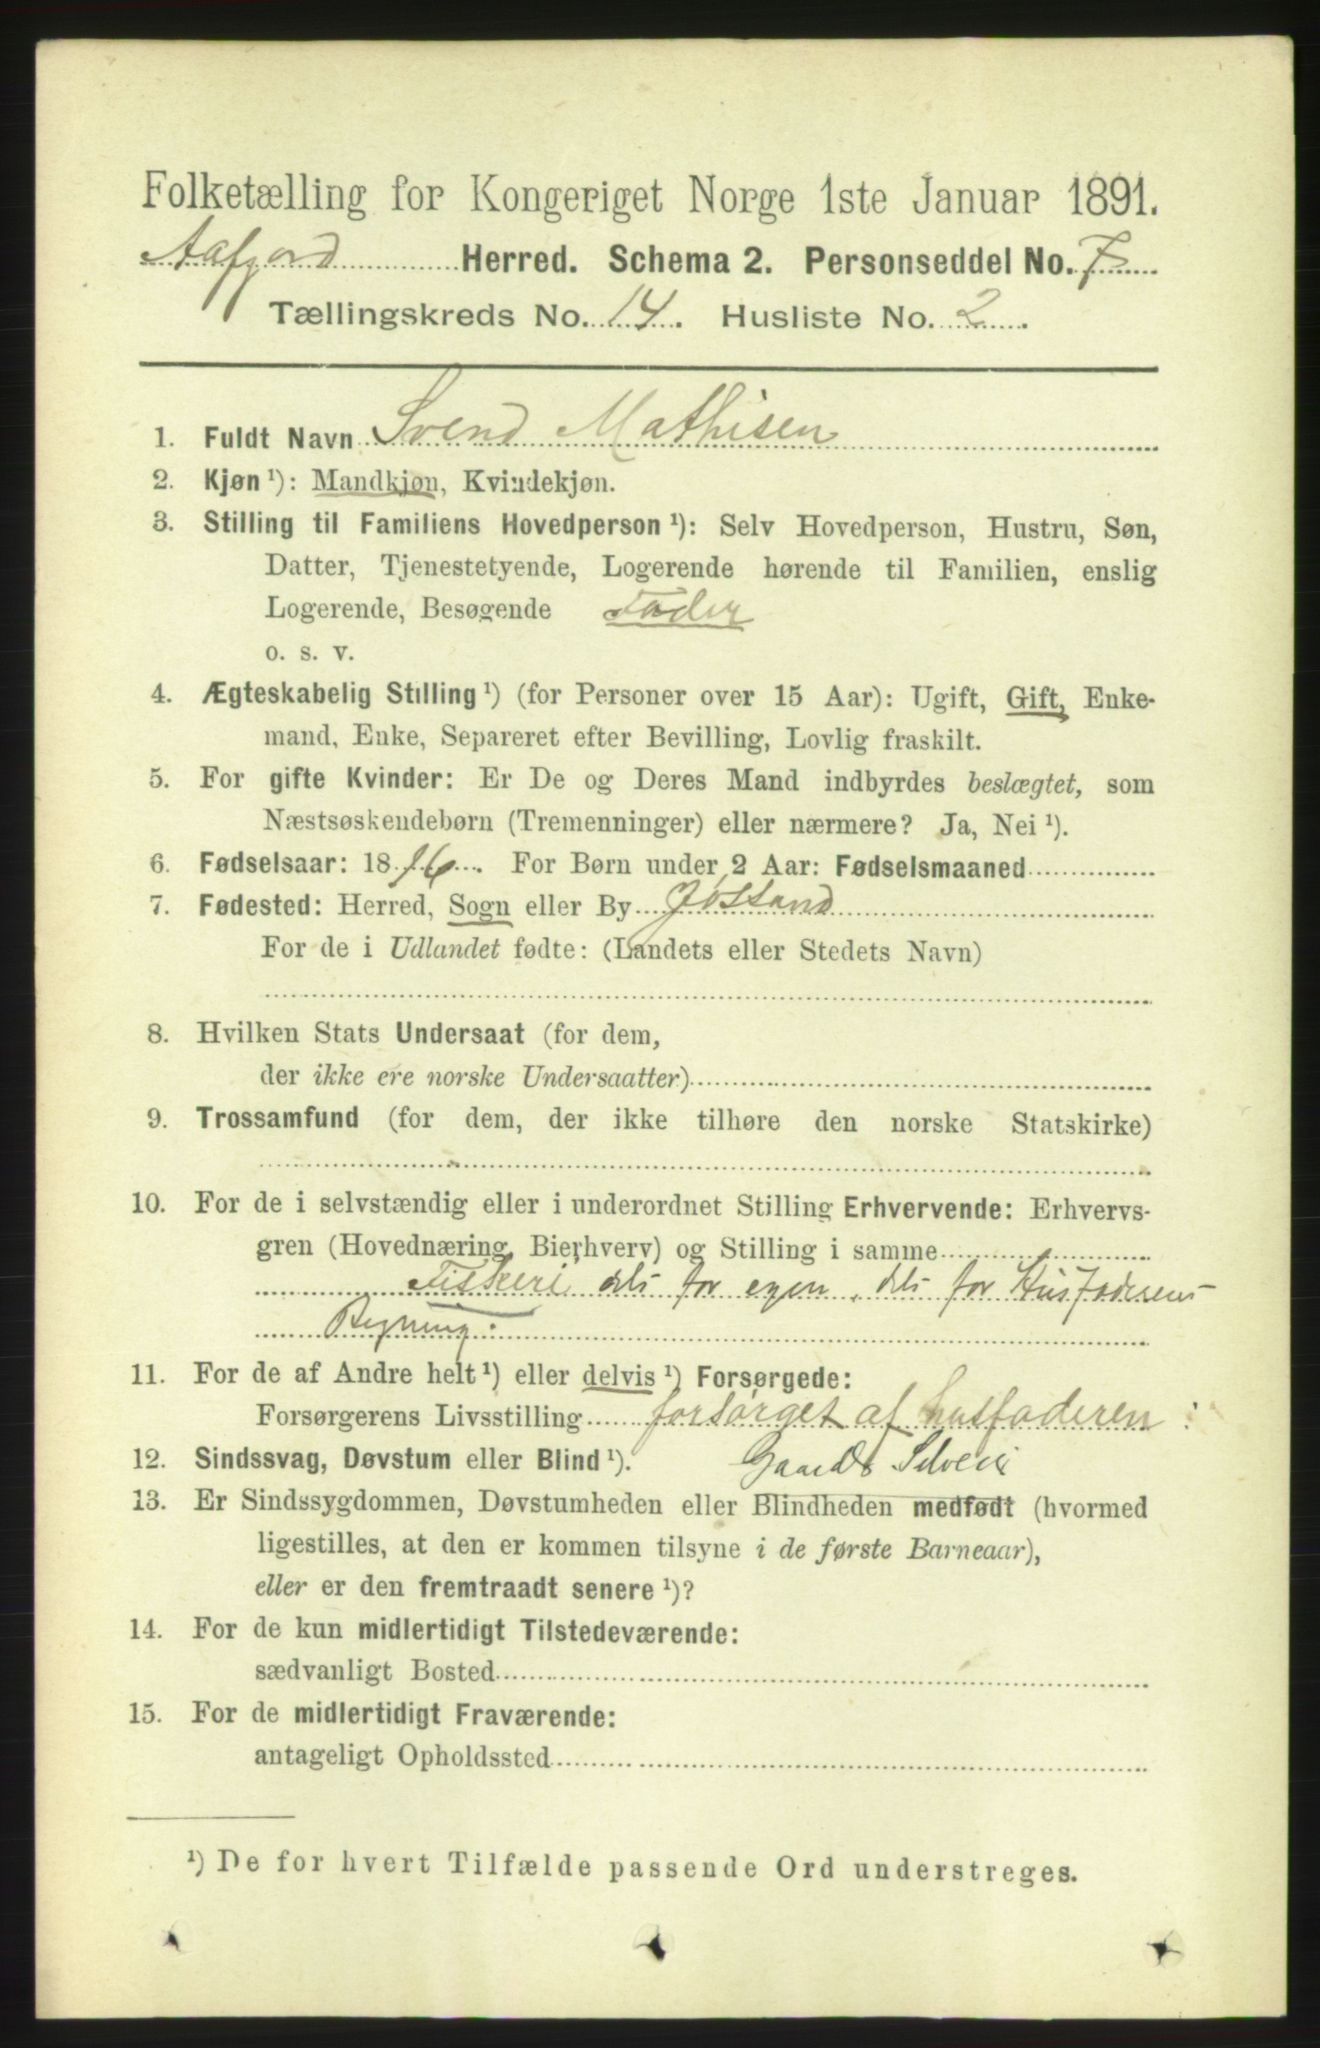 Folketælling for Kongeriget Norge 1ste Januar 1891.
Aafjord Herred. Schema 2. Personseddel No. 7
Tællingskreds No. 14. Husliste No. 2.
1. Fuldt Navn Svend Mathisen
2. Kjøn ¹): Mandkjøn, Kvindekjøn.
3. Stilling til Familiens Hovedperson ¹): Selv Hovedperson, Hustru, Søn,
Datter, Tjenestetyende, Logerende hørende til Familien, enslig
Logerende, Besøgende Fader
o. s. v.
4. Ægteskabelig Stilling ¹) (for Personer over 15 Aar): Ugift, Gift, Enke-
mand, Enke, Separeret efter Bevilling, Lovlig fraskilt.
5. For gifte Kvinder: Er De og Deres Mand indbyrdes beslægtet, som
Næstsøskendebørn (Tremenninger) eller nærmere? Ja, Nei ¹).
6. Fødselsaar: 1816. For Børn under 2 Aar: Fødselsmaaned
7. Fødested: Herred, Sogn eller By Jøssund
For de i Udlandet fødte: (Landets eller Stedets Navn)
8. Hvilken Stats Undersaat (for dem,
der ikke ere norske Undersaatter)
9. Trossamfund (for dem, der ikke tilhøre den norske Statskirke)
10. For de i selvstændig eller i underordnet Stilling Erhvervende: Erhvervs-
gren (Hovednæring, Bierhverv) og Stilling i samme
Fiskeri dels for egen, dels for Husfaderens
Regning.
11. For de af Andre helt ¹) eller delvis ¹) Forsørgede:
Forsørgerens Livsstilling forsørget af husfaderen:
12. Sindssvag, Døvstum eller Blind ¹). Gaards Selveier
13. Er Sindssygdommen, Døvstumheden eller Blindheden medfødt (hvormed
ligestilles, at den er kommen tilsyne i de første Barneaar),
eller er den fremtraadt senere ¹)?
14. For de kun midlertidigt Tilstedeværende:
sædvanligt Bosted
15. For de midlertidigt Fraværende:
antageligt Opholdssted
¹) De for hvert Tilfælde passende Ord understreges.